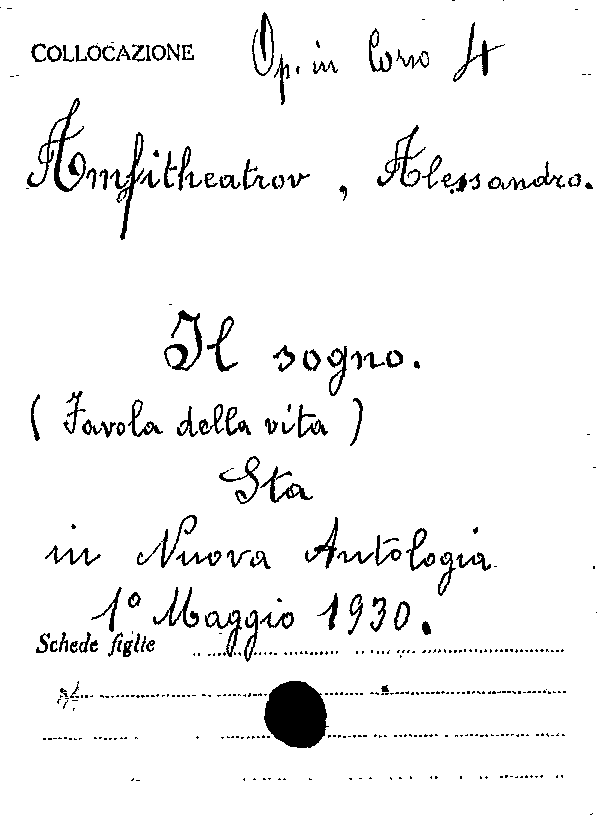 COLLOCAZIONE Op. in Corso 4
Amfitheatrov, Alessandro.
Il sogno.
(Favola della vita)
Sta
in Nuova Antologia
1º Maggio 1930.
Schede figlie